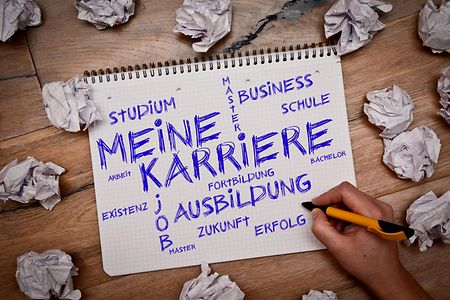 MASTER
BUSINESS
STUDIUM
SCHULE
MEINE
KARRIERE
BACHELOR
ARBEIT
FORTBILDUNG
JOB
AUSBILDUNG
EXISTENZ
ZUKUNFT
ERFOLG
MASTER